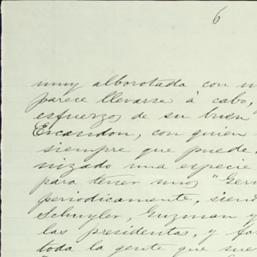 6
muy alborotada con
parece llevarse a cabo,
esfuerzo de su buen
Escandon, con quien
siempre que puede
nizado una especie
para tener unos "Ger
periodicamente, siend
Schuyler, Guzman y
las presidentas, y
toda la gente que